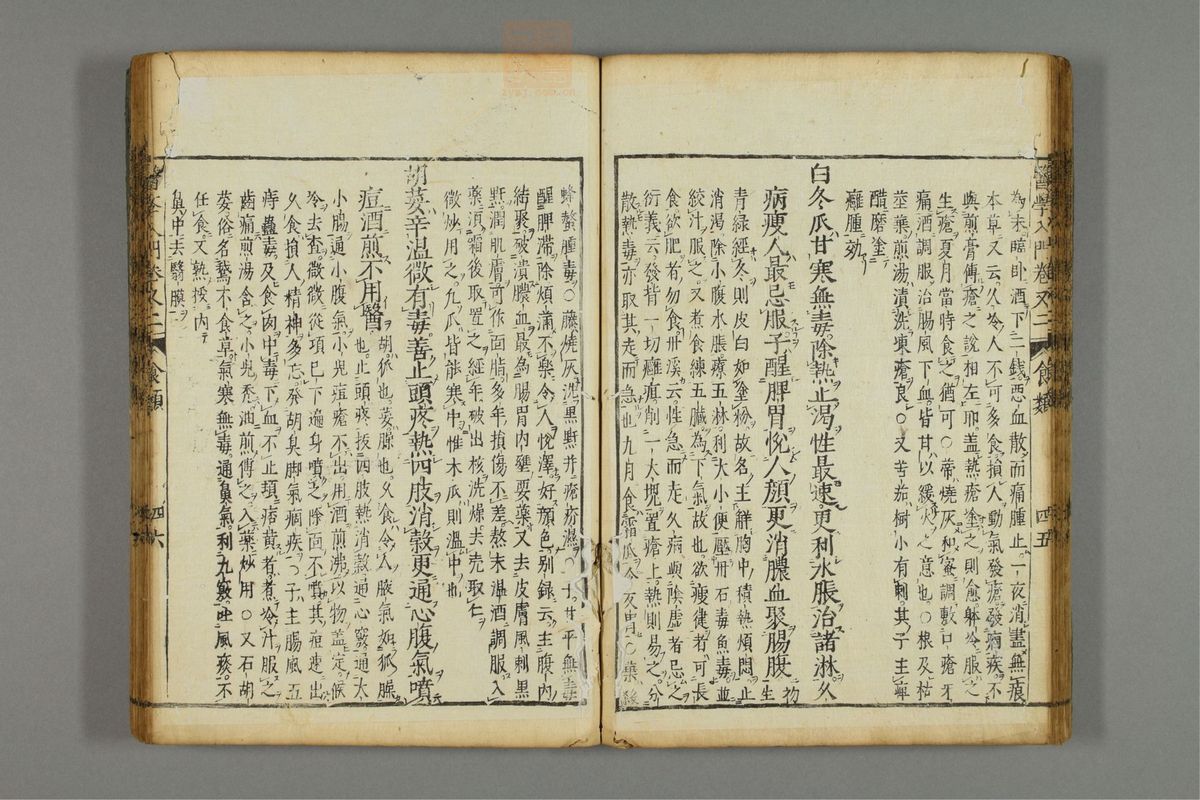 醫學入門卷又二 食類 四五
為末臨臥酒下二錢惡血散而痛腫止一夜消盡無痕
本草又云久冷人不可多食損人動氣發瘡發痼疾不
與煎膏傅瘡之說相左耶盖熱瘡塗之則愈躰冷服之
生瘡夏月當時食之猶可○蒂燒灰和蜜調敷口瘡牙
痛酒調服治腸風下血皆甘以緩火之意也○根及枯
莖葉煎湯漬洗凍瘡良○又苦茄樹小有刺其子主
醋磨塗
癰腫効
白冬瓜甘寒無毒除熱止渴性最速更利水脹治諸淋久
病瘦人最忌服子醒脾胃悅人顏更消膿血聚腸腹
初生
青綠經冬則皮白如塗粉故名主觧胸中積熱煩悶止
消渴除小腹水脹療五林利大小便壓丹石毒魚毒並
絞汁服之又煮食練五臟為下氣故也欲瘦健者可長
食欲肥者勿食丹溪云性急而走久病與陰虛者忌之
衍義云發背一切癰疽削一大塊置瘡上熱則易之分
散熱毒亦取其走而急也九月食霜瓜令反胃○藥
蜂螫腫毒○藤燒灰洗黑䵟并瘡疥濕○子甘平無毒
醒脾滯除煩滿不樂令人悅澤好顏色別錄云主腹內
結聚破潰膿血最為腸胃內壅要藥又去皮膚風刺黑
䵟潤肌膚可作面脂多年損傷不差熬末温酒調服入
藥須霜後取置之經年破出核洗燥去壳取仁
微炒用之凡瓜皆能寒中惟木瓜則溫中也
胡荽辛温微有毒善止頭疼熱四肢消穀更通心腹氣噴
痘酒煎不用醫
胡狐也荽臊也久食令人腋氣如狐臊
也止頭疼拔四肢熱消穀通心竅通大
小腸通小腹氣小兒痘瘡不出用酒煎沸以物盖定候
冷去查微微從項已下遍身噴之除面不噴其痘速出
久食損人精神多忘發胡臭脚氣痼疾○子主腸風五
痔蠱毒及食肉中毒下血不止頭痞黄者煮冷汁服之
齒痛煎湯含之小兒禿油煎傅之入藥炒用○又石胡
荽俗名鵞不食草氣寒無毒通鼻氣利九竅吐風痰不
任食又熟挼內
鼻中去翳膜
醫學入門卷又二 食類 四六